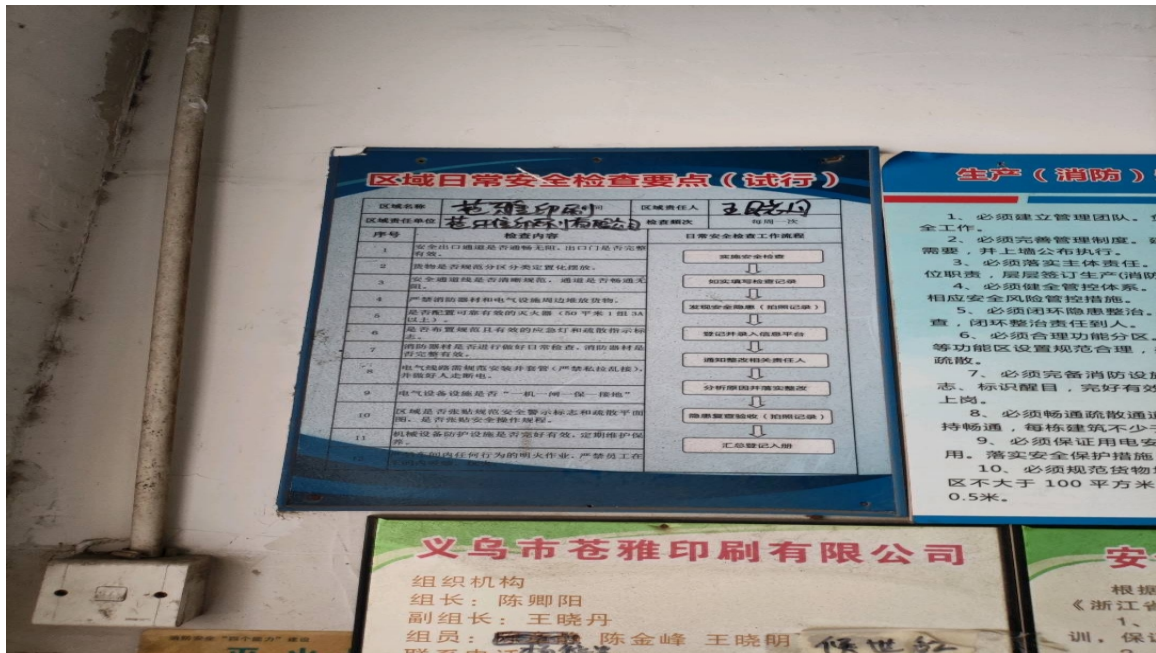 区域日常安全检查要点（试行）
区域名称 苍雅印刷 区域责任人 王晓丹
区域责任单位 苍雅印刷有限公司 检查频次 每周一次
序号 检查内容 日常安全检查工作流程
1 安全出口通道是否通畅无阻，出口门是否完整有效。
2 货物是否规范分区分类定置化摆放。
3 安全通道线是否清晰规范，通道是否畅通无阻。
4 严禁消防器材和电气设施周边堆放货物。
5 是否配置可靠有效的灭火器（50平米1组3A以上）。
6 是否布置规范且有效的应急灯和疏散指示标志。
7 消防器材是否进行做好日常检查，消防器材是否完整有效。
8 电气线路需规范安装并套管（严禁私拉乱接），并做好人走断电。
9 电气设备设施是否“一机一闸一保一接地”
10 区域是否张贴规范安全警示标志和疏散平面图，是否张贴安全操作规程。
11 机械设备防护设施是否完好有效，定期维护保养。
12 任何行为的明火作业，严禁员工在
实施安全检查
如实填写检查记录
发现安全隐患（拍照记录）
登记并录入信息平台
通知整改相关责任人
分析原因并落实整改
隐患复查验收（拍照记录）
汇总登记入册
生产（消防）
1、必须建立管理团队。
全工作。
2、必须完善管理制度。
需要，并上墙公布执行。
3、必须落实主体责任。
位职责，层层签订生产(消防
4、必须健全管控体系。
相应安全风险管控措施。
5、必须闭环隐患整治。
查，闭环整治责任到人。
6、必须合理功能分区。
等功能区设置规范合理，
疏散。
7、必须完备消防设施
志、标识醒目，完好有效
上岗。
8、必须畅通疏散通道
持畅通，每栋建筑不少于
9、必须保证用电安
用。落实安全保护措施
10、必须规范货物
区不大于 100 平方米
0.5米。
义乌市苍雅印刷有限公司
组织机构
组长：陈卿阳
副组长：王晓丹
组员： 陈金峰 王晓明 
安
根据
《浙江省
1、
训，保